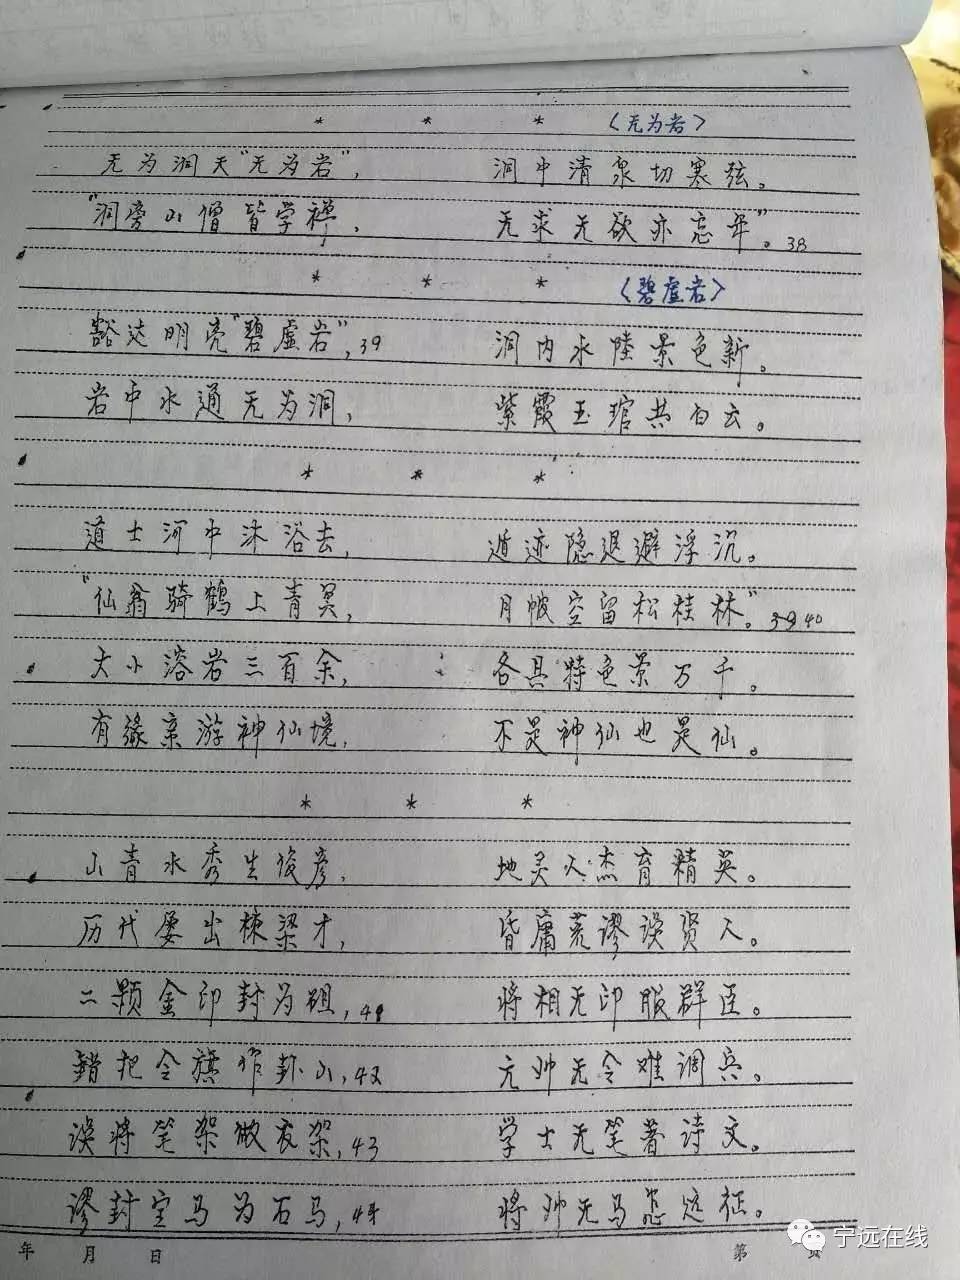 * * * 〈无为岩〉
无为洞天"无为岩", 洞中清泉切寒弦。
"洞旁山僧皆学禅, 无求无欲亦忘年"。38
* * * 〈碧虚岩〉
豁达明亮"碧虚岩",39 洞内水陆景色新。
岩中水通无为洞, 紫霞玉琯共白云。
* * *
道士河中沐浴去, 遁迹隐退避浮沉。
"仙翁骑鹤上青冥, 月帔空留松桂林"。39 40
大小溶岩三百余, 各具特色景万千。
有缘亲游神仙境, 不是神仙也是仙。
* * *
山青水秀生俊彦, 地灵人杰育精英。
历代屡出栋梁才, 昏庸荒谬误贤人。
二颗金印封为砠,41 将相无印服群臣。
错把令旗作卦山,42 元帅无令难调兵。
误将笔架做衣架,43 学士无笔著诗文。
谬封宝马为石马,44 将帅无马怎远征。
年 月 日 第 页
宁远在线